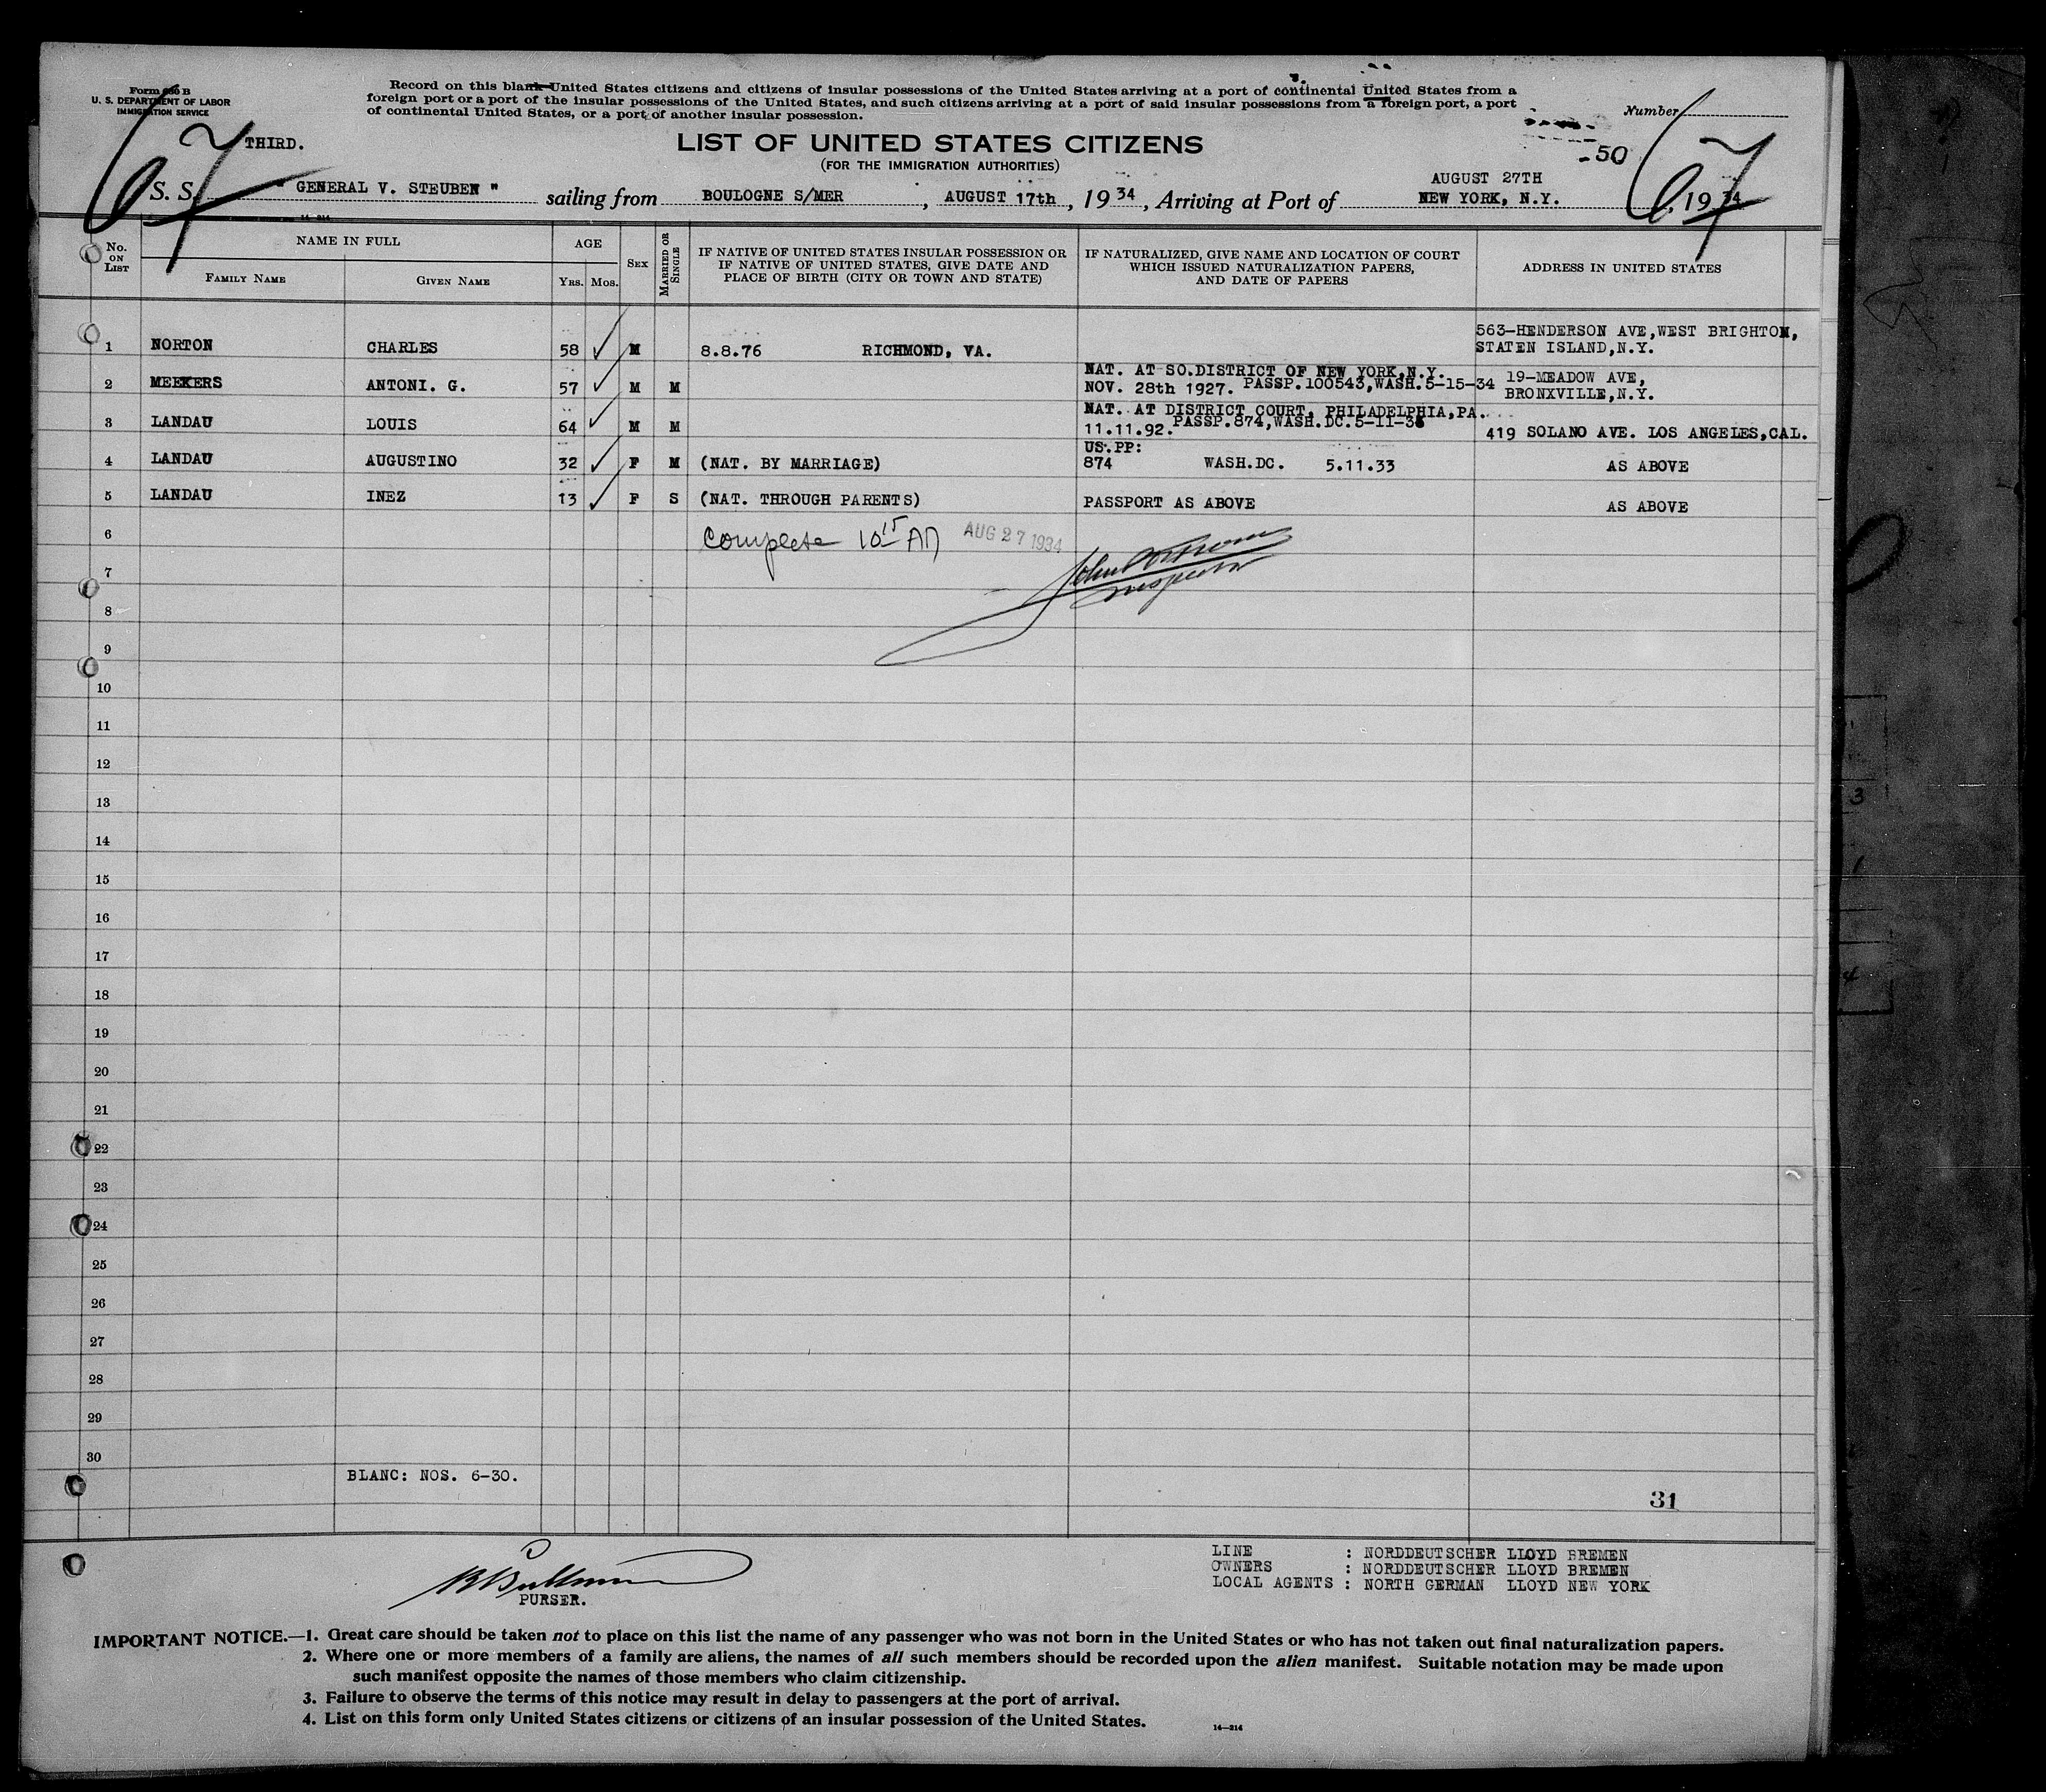 Form 630 B
U. S. DEPARTMENT OF LABOR
IMMIGRATION SERVICE
Record on this blank United States citizens and citizens of insular possessions of the United States arriving at a port of continental United States from a
foreign port or a port of the insular possessions of the United States, and such citizens arriving at a port of said insular possessions from a foreign port, a port
of continental United States, or a port of another insular possession.
Number
67
67
THIRD.
LIST OF UNITED STATES CITIZENS
(FOR THE IMMIGRATION AUTHORITIES)
-50
S. S. " GENERAL V. STEUBEN " sailing from BOULOGNE S/MER, AUGUST 17th, 1934, Arriving at Port of NEW YORK, N.Y. AUGUST 27TH, 1934
14-214
No. ON LIST
NAME IN FULL
FAMILY NAME
GIVEN NAME
AGE
YRS. MOS.
SEX
MARRIED OR SINGLE
IF NATIVE OF UNITED STATES INSULAR POSSESSION OR
IF NATIVE OF UNITED STATES, GIVE DATE AND
PLACE OF BIRTH (CITY OR TOWN AND STATE)
IF NATURALIZED, GIVE NAME AND LOCATION OF COURT
WHICH ISSUED NATURALIZATION PAPERS,
AND DATE OF PAPERS
ADDRESS IN UNITED STATES
1 NORTON CHARLES 58 M 8.8.76 RICHMOND, VA. 563-HENDERSON AVE,WEST BRIGHTON,
STATEN ISLAND,N.Y.
2 MEEKERS ANTONI. G. 57 M M NAT. AT SO.DISTRICT OF NEW YORK,N.Y.
NOV. 28th 1927. PASSP.100543,WASH.5-15-34 19-MEADOW AVE,
BRONXVILLE,N.Y.
3 LANDAU LOUIS 64 M M NAT. AT DISTRICT COURT, PHILADELPHIA,PA.
11.11.92. PASSP.874,WASH.DC.5-11-33 419 SOLANO AVE. LOS ANGELES,CAL.
4 LANDAU AUGUSTINO 32 F M (NAT. BY MARRIAGE) US.PP:
874 WASH.DC. 5.11.33 AS ABOVE
5 LANDAU INEZ 13 F S (NAT. THROUGH PARENTS) PASSPORT AS ABOVE AS ABOVE
6 Complete 10 15 AM AUG 27 1934
Inspector
7
8
9
10
11
12
13
14
15
16
17
18
19
20
21
22
23
24
25
26
27
28
29
30
BLANC: NOS. 6-30.
31
PURSER.
LINE : NORDDEUTSCHER LLOYD BREMEN
OWNERS : NORDDEUTSCHER LLOYD BREMEN
LOCAL AGENTS : NORTH GERMAN LLOYD NEW YORK
IMPORTANT NOTICE.—1. Great care should be taken not to place on this list the name of any passenger who was not born in the United States or who has not taken out final naturalization papers.
2. Where one or more members of a family are aliens, the names of all such members should be recorded upon the alien manifest. Suitable notation may be made upon
such manifest opposite the names of those members who claim citizenship.
3. Failure to observe the terms of this notice may result in delay to passengers at the port of arrival.
4. List on this form only United States citizens or citizens of an insular possession of the United States.
14-214